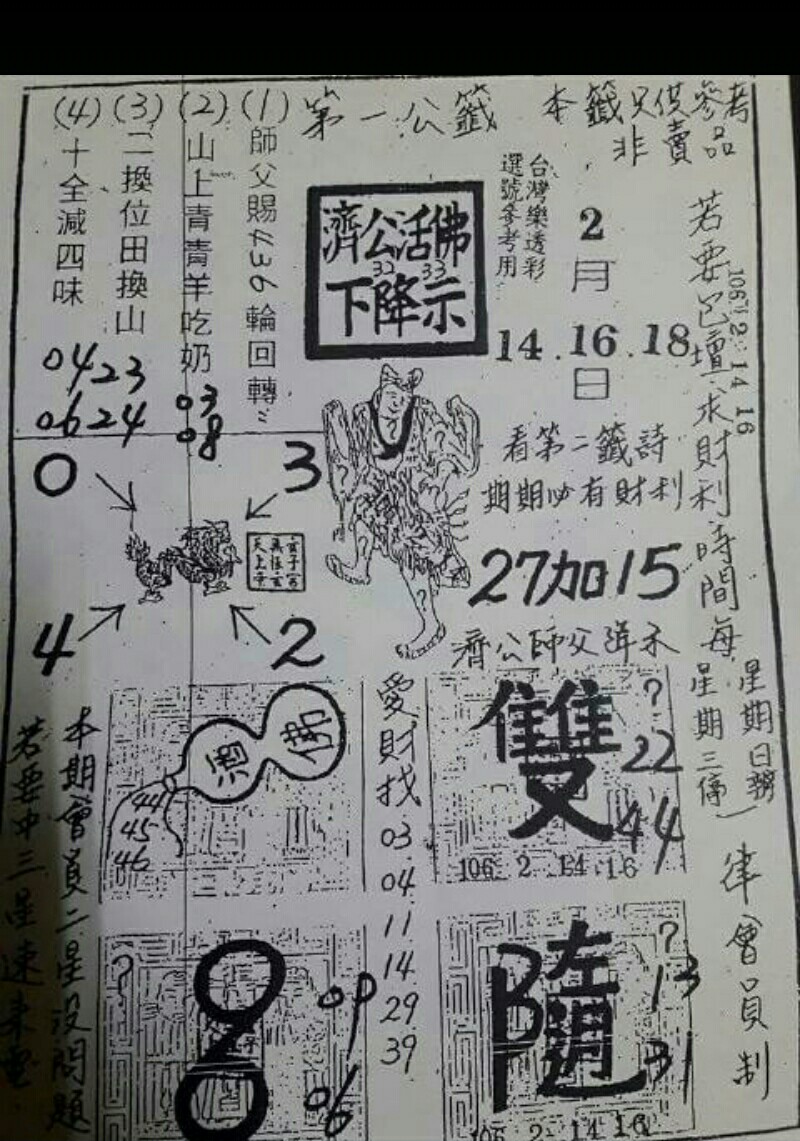 本籤只供參考
非賣品
第一公籤
(1)師父賜4369輪回轉
(2)山上青青羊吃奶
03
08
(3)二換位田換山
23
24
(4)十全減四味
04
06
濟公活佛
32 33
下降示
台灣樂透彩
選號參考用
2
月
14.16.18
日
若要巴壇求財利時間每
星期日務
星期三停
律會員制
106 2 14 16
看第二籤詩
期期必有財利
27加15
濟公師父降示
0
3
4
2
佛
酒
44
45
46
愛財找
03
04
11
14
29
39
雙
?
22
44
106 2 14 16
?
8
09
06
隨
?
13
31
106 2 14 16
本期會員二星沒問題
若要中三星速來電